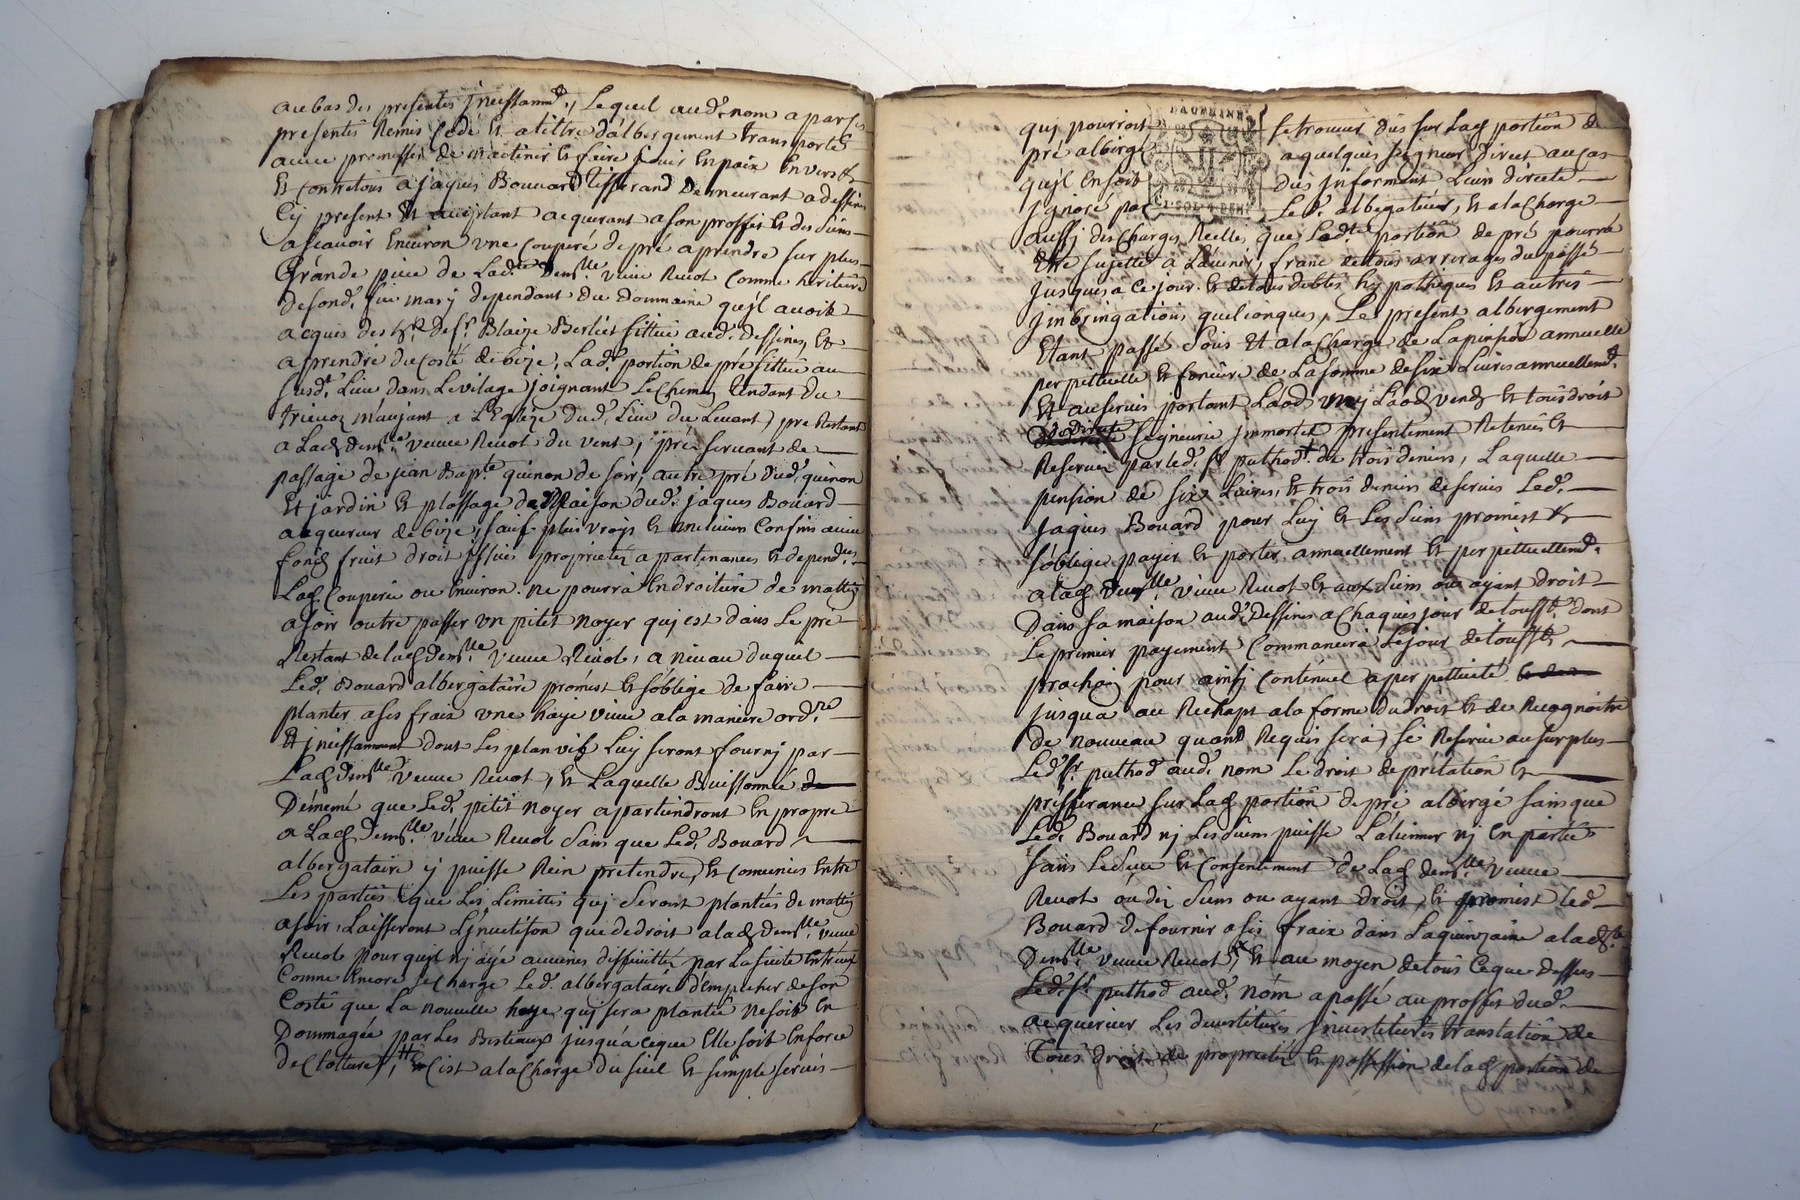 au bas des presentes jncessamt., Lequel aud. nom a par ses
presentes Remis cedé et a tiltre d'albergement transporté
avec promesses de mintenir et faire jouir En paix Envers
Et contre tous a jaques Bouuard tisserand Demeurant a dessines
Cy present Et aceptant acquerant a son proffit et des siens
ascauoir Enuiron vne Couperé de pré a prendre sur plus
Grande piece de Lad. demlle. veuue Reuot Comme heritiere
de fond. feu mary dependant du Dommaine qu'jl auoit
acquis des hrs. de sr. Blaize Berliet sittué aud. dessines, Et
a prendre du Costé de bize, Lad. portion de pré sittué au
susdt. Lieu dans Le vilage joignant Le Chemin tendant du
a L'Eglize dud. Lieu du Leuant, pre Restant
a Lad. demlle. veuue Reuot du vent, pré seruant de
passage de jean Bapte. guinon de soir, autre pré dud. guinon
Et jardin et plassage de Maison dud. jaques Bouard
acquereur de bize, sauf plus vrays et meilieurs Confins auec
fond fruit droit jssues proprietez apartenances et depend.
Lad. Couperée ou Enuiron ne pourra En droiture de matin
a soir outre passer vn pitit noyer quj est dans Le pré
Restant de lad. demlle. veuue Reuot, a niueau duquel
Led. Bouard albergataire promest et s'oblige de faire
planter a ses fraix vne haye viue a la maniere ordre.
Et jncessamment dont Les plan vifs Luy seront fournj par
Lad. demlle. veuue Reuot, et Laquelle Buissonnée de
Démemé que Led. pitit noyer apartiendront En propre
a Lad. demlle. veuue Reuot sans que Led. Bouard
albergataire y puisse Rien pretendre, et comunies Entre
Les parties que Les Limittes quj seront plantées de matin
a soir, Laisseront L'jnuetison que de droit a lad. demlle. veuue
Reuot pour qu'jl nj aÿé aucunes difficultés par La suite Entreux
Comme Encore se charge Led. albergataire d'Empecher de son
Costé que La nouuelle haye quj sera plantée ne soit En
Dommagée par Les Bestiaux jusqu'a ceque Elle soit En force
de Clotture, Et C'est a la Charge du seul Et simple seruis
quj pourroit se trouuer dus sur Lad. portion de
pré albergé a quelques seigneur Direct au cas
qu'jl En soit Dus jnforment Leur directe
jgnoré par Led. albergateur, et a la Charge
aussj des Charges Reelles que Ladte. portion de pré pourra
Etre sujette a L'auenir, franc de tous arrerages du passé
jusques a Ce jour et de tous debtes hypotheques et autres
jmbringations quelconques, Le present albergement
Etant passé sous Et a la Charge de La pension annuelle
perpettuelle et fonciere de La somme de six Liures annuellemt.
Et au seruis portant Laod, my Laod, vend et tous droit
De Directe seigneurie jmmortel presentement Retenus et
Reserués par led. sr. puthodt. de trois deniers, Laquelle
pension de six Liures, et trois deniers de seruis Led.
Jaques Bouard pour Luy et Les siens promest et
s'oblige payer et porter annuellement et perpettuellemt.
a lad. demlle. veuue Reuot et aux siens ou ayant droit
Dans sa maison aud. dessines a Chaques jour de tousst. dont
Le premier payement Commancera Le jour de tousst.
prochain pour ainsj Contenuer a perpettuité
jusqu'a au Rechapt a la forme du droit et de Recognoitre
de nouueau quand Requis sera, se Reserue au surplus
Led. sr. puthod aud. nom Le droit de prelation et
prefferance sur Lad. portion de pré albergé sans que
Led. Bouard nj Les siens puisse L'aliener nj En partie
sans Le sceu et Consentement de Lad. demlle. veuue
Reuot ou des siens ou ayant droit, et promest led.
Bouard de fournir a ses fraix dans La quinzaine a lad.
Demlle. veuue Reuot, Et au moyen de tous Ceque dessus
Led. sr. puthod aud. nom a passé au proffit dud.
acquereur Les deuestitures jnuestitures translation de
Tous droits de proprieté et possession de lad. portion de
DAUPHINE